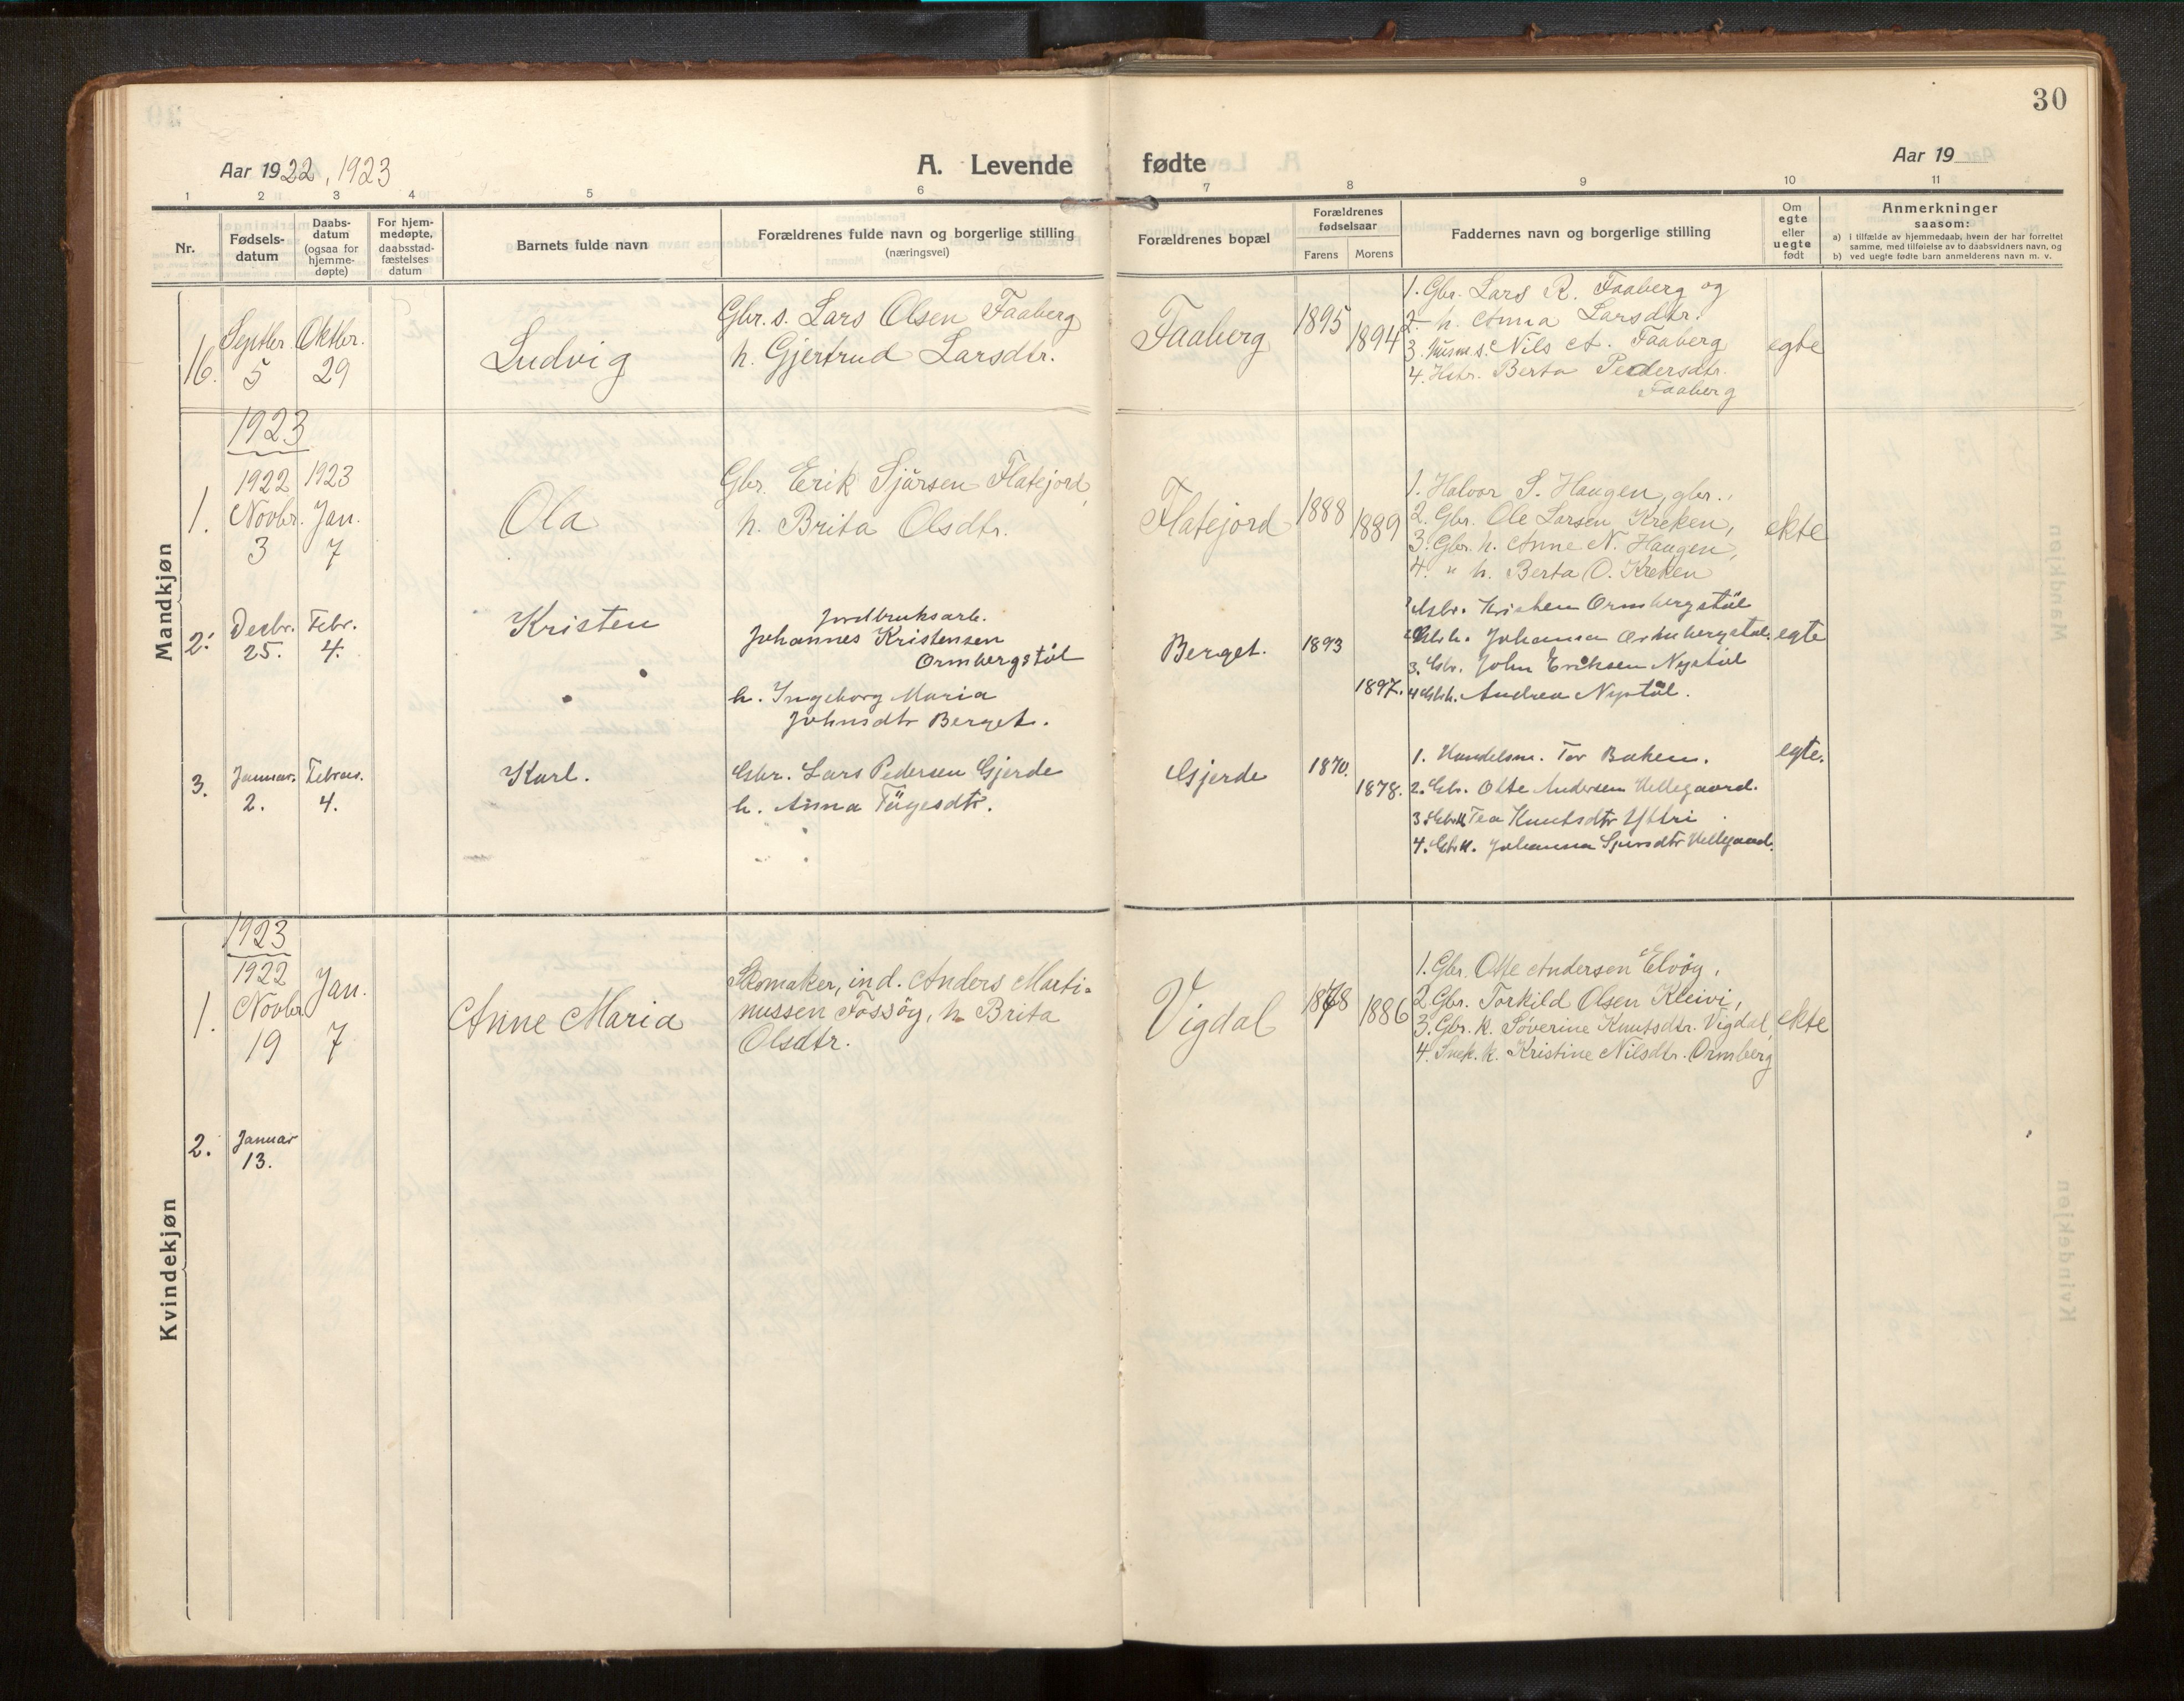 30
Aar 1922, 1923
A. Levende fødte
Aar 19
1 2 3 4 5 6 7 8 9 10 11
Nr.
Fødsels-
datum
Daabs-
datum
(ogsaa for
hjemme-
døpte)
For hjem-
medøpte,
daabsstad-
fæstelses
datum
Barnets fulde navn
Forældrenes fulde navn og borgerlige stilling
(næringsvei)
Forældrenes bopæl
Forældrenes
fødselsaar
Farens Morens
Faddernes navn og borgerlige stilling
Om
egte
eller
uegte
født
Anmerkninger
saasom:
a) i tilfælde av hjemmedaab, hvem der har forrettet
samme, med tilføielse av to daabsvidners navn, og
b) ved uegte fødte barn anmelderens navn m. v.
Mandkjøn
16.
Septbr.
5
Oktbr.
29
Ludvig
Gbr. s. Lars Olsen Faaberg
h. Gjertrud Larsdtr.
Faaberg
1895
1894
1. Gbr. Lars R. Faaberg og
2. h. Anna Larsdtr.
3. Husm. s. Nils A. Faaberg
4. Hstr. Berta Pedersdtr.
Faaberg
egte
1923
1.
1922
Novbr.
3
1923
Jan.
7
Ola
Gbr. Erik Sjursen Flatejord,
h. Brita Olsdtr.
Flatejord
1888
1889
1. Halvor S. Haugen, gbr.,
2. Gbr. Ole Larsen Kreken,
3. Gbr. h. Anne N. Haugen,
4. " h. Berta O. Kreken
ekte
2.
Desbr.
25.
Febr.
4.
Kristen
Jordbruksarb.
Johannes Kristensen
Ormbergstøl
h. Ingeborg Maria
Johnsdtr Berget.
Berget.
1893
1897.
Gbr. Kristen Ormbergstøl
h. Johanna Ormbergstøl.
3. Gbr. John Eriksen Nystøl
4 Gbr. h. Andrea Nystøl.
egte
3.
Januar.
2.
Februar.
4.
Karl.
Gbr. Lars Pedersen Gjerde
h. Anna Tøgesdtr.
Gjerde
1870.
1878.
1. Handelsm. Tor Bakken.
2. Gbr. Otte Andersen Hellegaard.
3 Tea Knutsdtr Yttri
4. Gbr. k. Johanna Sjursdtr Hellegaard.
egte.
Kvindekjøn
1923
1.
1922
Novbr
19
Jan.
7
Anne Maria
Skomaker, ind. Anders Marti-
nussen Fossøy, h. Brita
Olsdtr.
Vigdal
1878
1886
1. Gbr. Otte Andersen Elvøy,
2. Gbr. Torkild Olsen Kleivi,
3. Gbr. k. Søverine Knutsdtr. Vigdal,
4. Snek. k. Kristine Nilsdtr. Ormberg
ekte
2.
Januar
13.